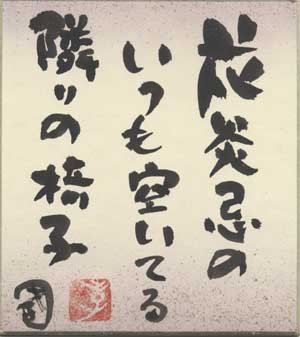 花炎忌の
いつも空いてる
隣りの椅子